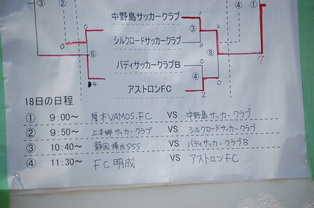 中野島サッカークラブ
シルクロードサッカークラブ
バディサッカークラブB
アストロンFC
18日の日程
① 9:00〜 厚木VAMOS.FC VS 中野島サッカークラブ
② 9:50〜 上本郷サッカークラブ VS シルクロードサッカークラブ
③ 10:40〜 555 VS バディサッカークラブB
④ 11:30〜 FC明成 VS アストロンFC